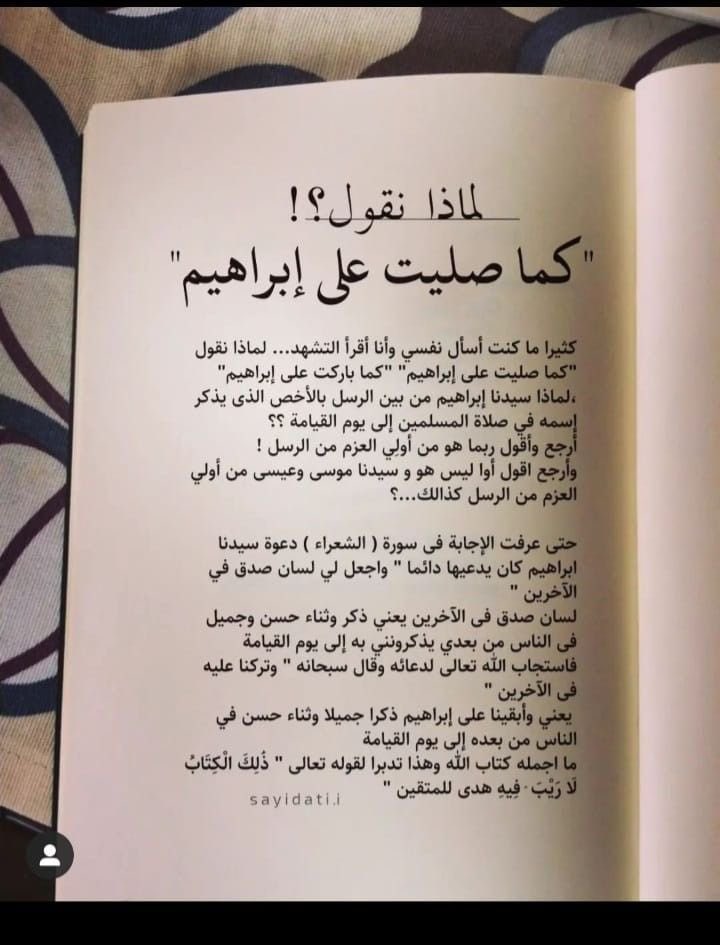 لماذا نقول؟!
"كما صليت على إبراهيم"
كثيرا ما كنت أسأل نفسي وأنا أقرأ التشهد... لماذا نقول
"كما صليت على إبراهيم" "كما باركت على إبراهيم"
،لماذا سيدنا إبراهيم من بين الرسل بالأخص الذى يذكر
إسمه في صلاة المسلمين إلى يوم القيامة ؟؟
أرجع وأقول ربما هو من أولِي العزم من الرسل !
وأرجع اقول أوا ليس هو و سيدنا موسى وعيسى من أولي
العزم من الرسل كذالك...؟
حتى عرفت الإجابة فى سورة ( الشعراء ) دعوة سيدنا
ابراهيم كان يدعيها دائما " واجعل لي لسان صدق في
الآخرين "
لسان صدق فى الآخرين يعني ذكر وثناء حسن وجميل
فى الناس من بعدي يذكرونني به إلى يوم القيامة
فاستجاب الله تعالى لدعائه وقال سبحانه " وتركنا عليه
فى الآخرين "
يعني وأبقينا على إبراهيم ذكرا جميلا وثناء حسن في
الناس من بعده إلى يوم القيامة
ما اجمله كتاب الله وهذا تدبرا لقوله تعالى " ذَٰلِكَ الْكِتَابُ
لَا رَيْبَ ۛ فِيهِ هدى للمتقين "
sayidati.i